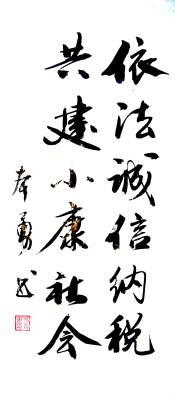 依法诚信纳税
共建小康社会